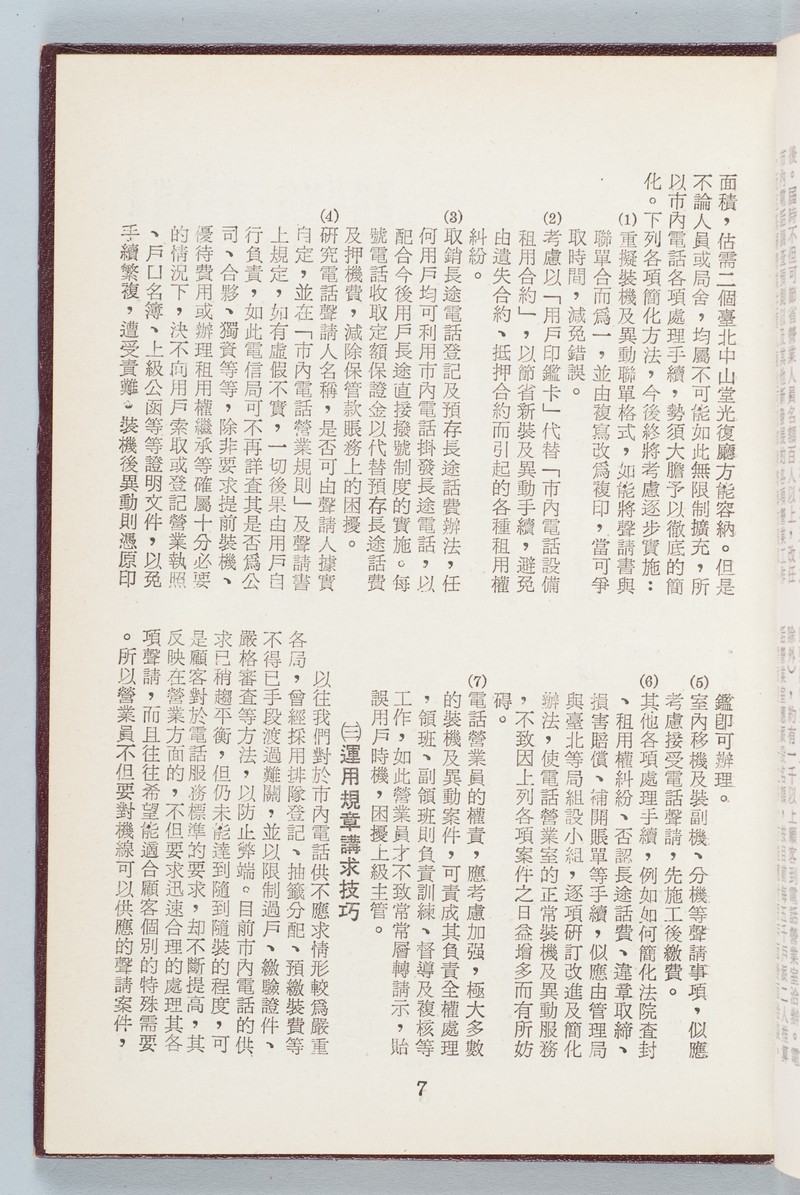 面積，估需二個臺北中山堂光復廳方能容納。但是
不論人員或局舍，均屬不可能如此無限制擴充，所
以市內電話各項處理手續，勢須大膽予以徹底的簡
化。下列各項簡化方法，今後終將考慮逐步實施：
⑴重擬裝機及異動聯單格式，如能將聲請書與
聯單合而爲一，並由複寫改爲複印，當可爭
取時間，減免錯誤。
⑵考慮以「用戶印鑑卡」代替「市內電話設備
租用合約」，以節省新裝及異動手續，避免
由遺失合約、抵押合約而引起的各種租用權
糾紛。
⑶取銷長途電話登記及預存長途話費辦法，任
何用戶均可利用市內電話掛發長途電話，以
配合今後用戶長途直接撥號制度的實施。每
號電話收取定額保證金以代替預存長途話費
及押機費，減除保管款賬務上的困擾。
⑷研究電話聲請人名稱，是否可由聲請人據實
自定，並在「市內電話營業規則」及聲請書
上規定，如有虛假不實，一切後果由用戶自
行負責，如此電信局可不再詳查其是否爲公
司、合夥、獨資等等，除非要求提前裝機、
優待費用或辦理租用權繼承等確屬十分必要
的情況下，決不向用戶索取或登記營業執照
、戶口名簿、上級公函等等證明文件，以免
手續繁複，遭受責難。裝機後異動則憑原印
鑑卽可辦理。
⑸室內移機及裝副機、分機等聲請事項，似應
考慮接受電話聲請，先施工後繳費。
⑹其他各項處理手續，例如如何簡化法院查封
、租用權糾紛、否認長途話費、違章取締、
損害賠償、補開賬單等手續，似應由管理局
與臺北等局組設小組，逐項研訂改進及簡化
辦法，使電話營業室的正常裝機及異動服務
，不致因上列各項案件之日益增多而有所妨
碍。
⑺電話營業員的權責，應考慮加强，極大多數
的裝機及異動案件，可責成其負責全權處理
，領班、副領班則負責訓練、督導及複核等
工作，如此營業員才不致常常層轉請示，貽
誤用戶時機，困擾上級主管。
㈢運用規章講求技巧
以往我們對於市內電話供不應求情形較爲嚴重
各局，曾經採用排隊登記、抽籤分配、預繳裝費等
不得已手段渡過難關，並以限制過戶、繳驗證件、
嚴格審查等方法，以防止弊端。目前市內電話的供
求已稍趨平衡，但仍未能達到隨到隨裝的程度，可
是顧客對於電話服務標準的要求，却不斷提高，其
反映在營業方面的，不但要求迅速合理的處理其各
項聲請，而且往往希望能適合顧客個別的特殊需要
。所以營業員不但要對機線可以供應的聲請案件，
7